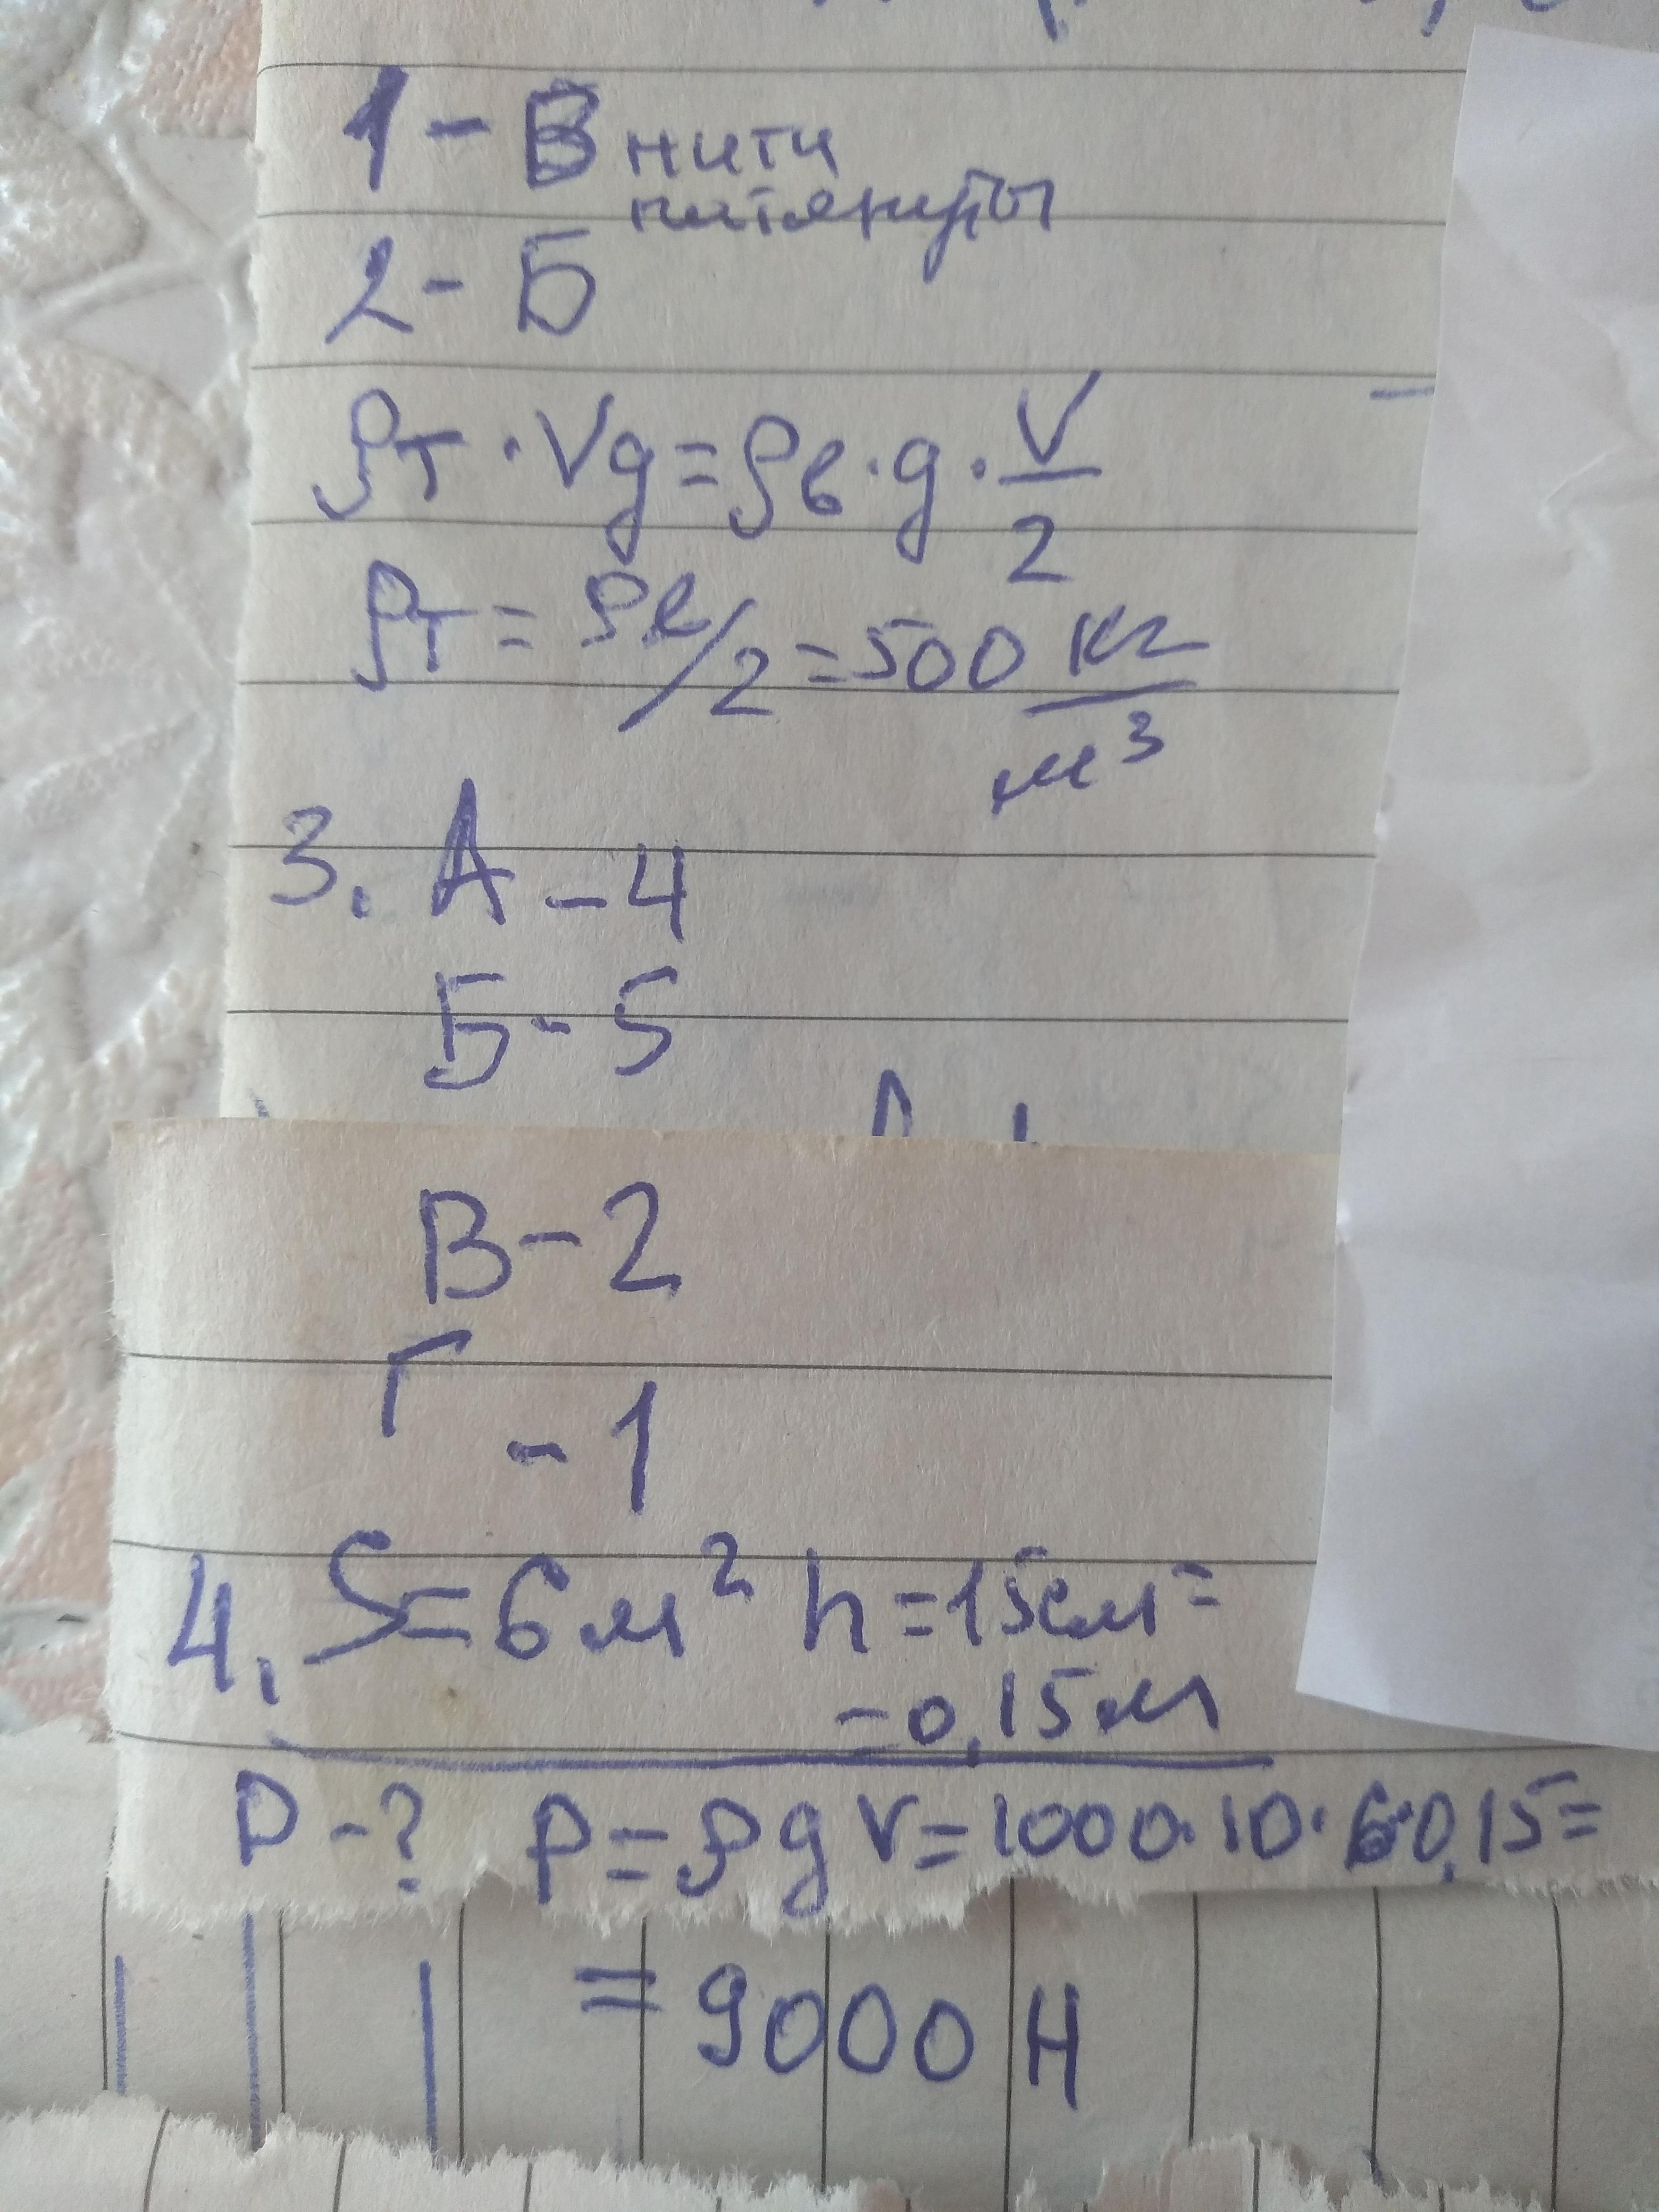 1 - В нити
натянуты
2 - Б
ρт · Vg = ρв · g · V/2
ρт = ρв/2 = 500 кг/м³
3. А - 4
Б - 5
В - 2
Г - 1
4. S = 6 м² h = 15 см =
= 0,15 м
P - ? P = ρgV = 1000 · 10 · 6 · 0,15 =
= 9000 Н